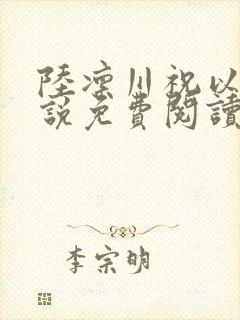 陸凛川祝以
說免費閱讀
李宗明